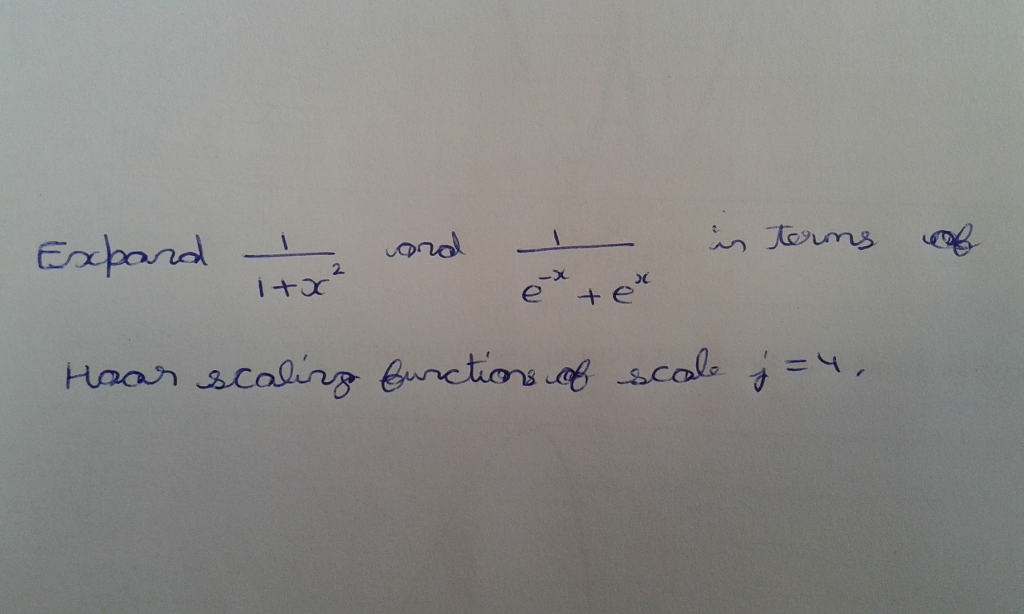 Expand \frac{1}{1+x^2} and \frac{1}{e^{-x}+e^x} in terms of
Haar scaling functions of scale j=4.